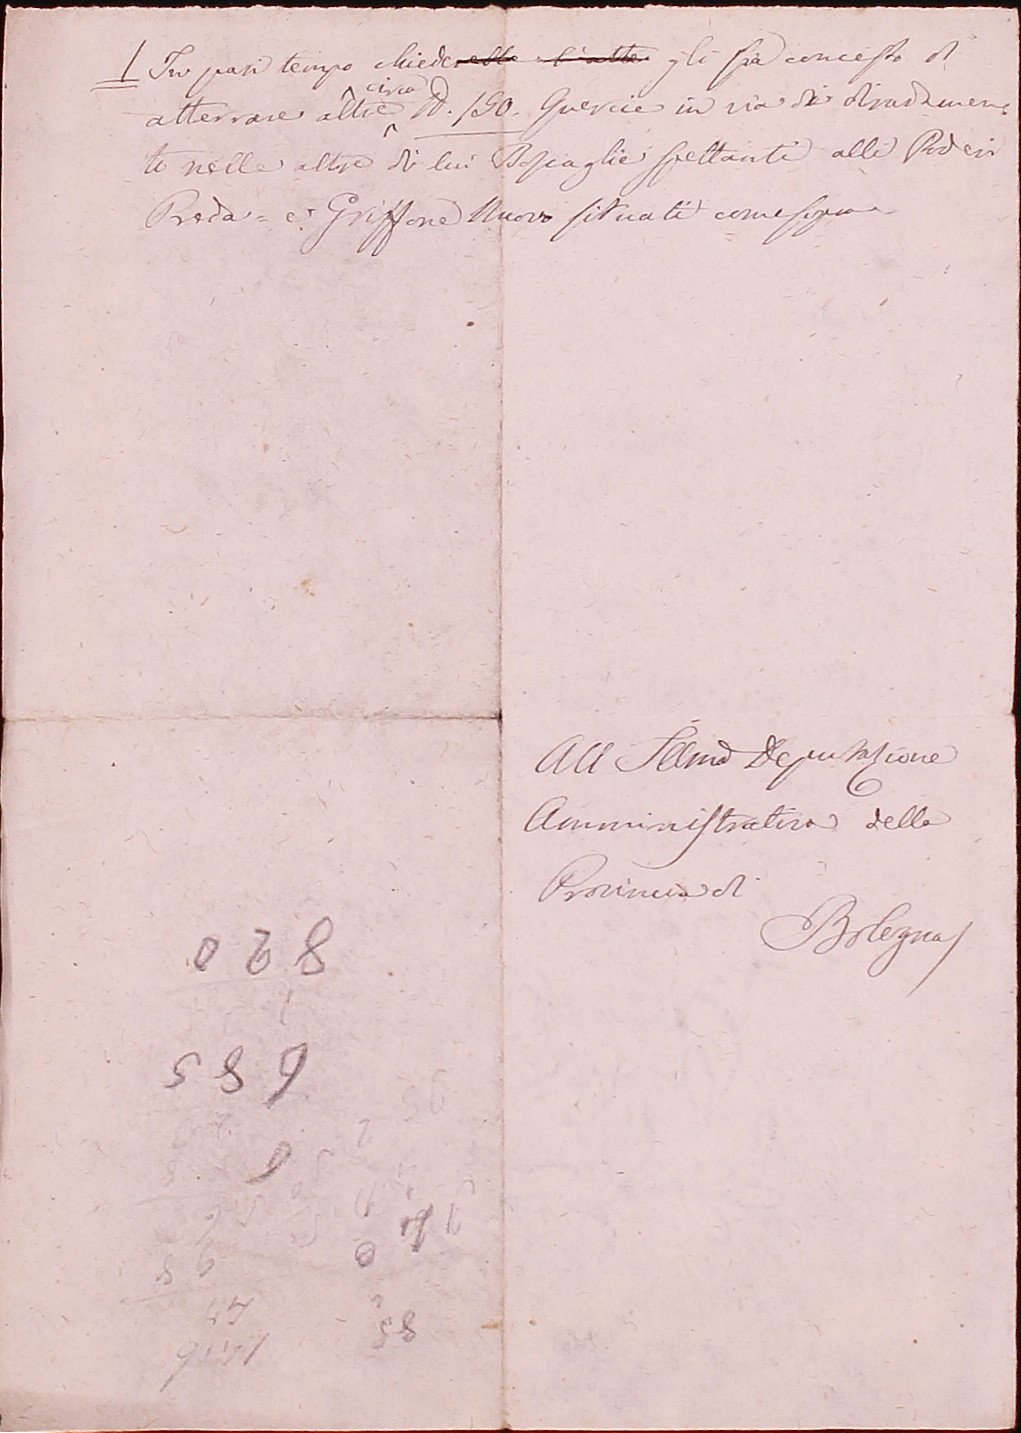 1 In pari tempo chiede gli sia concesso di
atterrare altre circa N. 150. Quercie in via di diradamen=
to nelle altre di lui Boscaglie spettanti alli Poderi
Preda = e Griffone Nuovo situati come sopra
All Illma Deputazione
Amministrativa della
Provincia di
Bologna
820
589